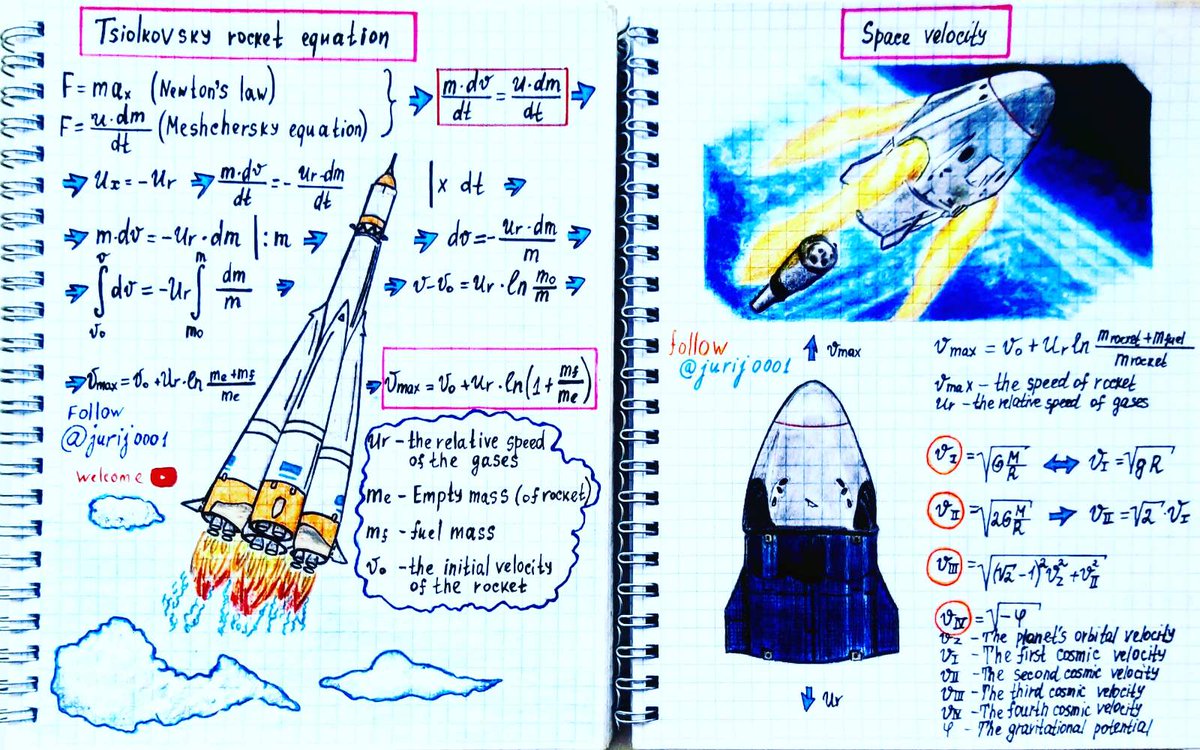 Tsiolkovsky rocket equation
F = maₓ (Newton's law)
F = u·dm/dt (Meshchersky equation)
} ⇒ m·dv/dt = u·dm/dt ⇒
⇒ uₓ = -ur ⇒ m·dv/dt = - ur·dm/dt | x dt ⇒
⇒ m·dv = -ur·dm | :m ⇒ dv = - ur·dm/m ⇒
⇒ ∫_{v₀}^{v} dv = -ur ∫_{m₀}^{m} dm/m ⇒ v - v₀ = ur·ln m₀/m ⇒
⇒ vmax = v₀ + ur·ln (me + mf)/me ⇒ vmax = v₀ + ur·ln(1 + mf/me)
Follow
@jurij0001
welcome
ur - the relative speed
of the gases
me - Empty mass (of rocket)
mf - fuel mass
v₀ - the initial velocity
of the rocket
Space velocity
follow
@jurij0001
vmax
ur
vmax = v₀ + ur ln (mrocket + mfuel)/mrocket
vmax - the speed of rocket
ur - the relative speed of gases
vI = √(G M/R) ⇔ vI = √(gR)
vII = √(2G M/R) ⇒ vII = √2·vI
vIII = √((√2 - 1)²vz² + vII²)
vIV = √(-φ)
vz - The planet's orbital velocity
vI - The first cosmic velocity
vII - The second cosmic velocity
vIII - The third cosmic velocity
vIV - The fourth cosmic velocity
φ - The gravitational potential